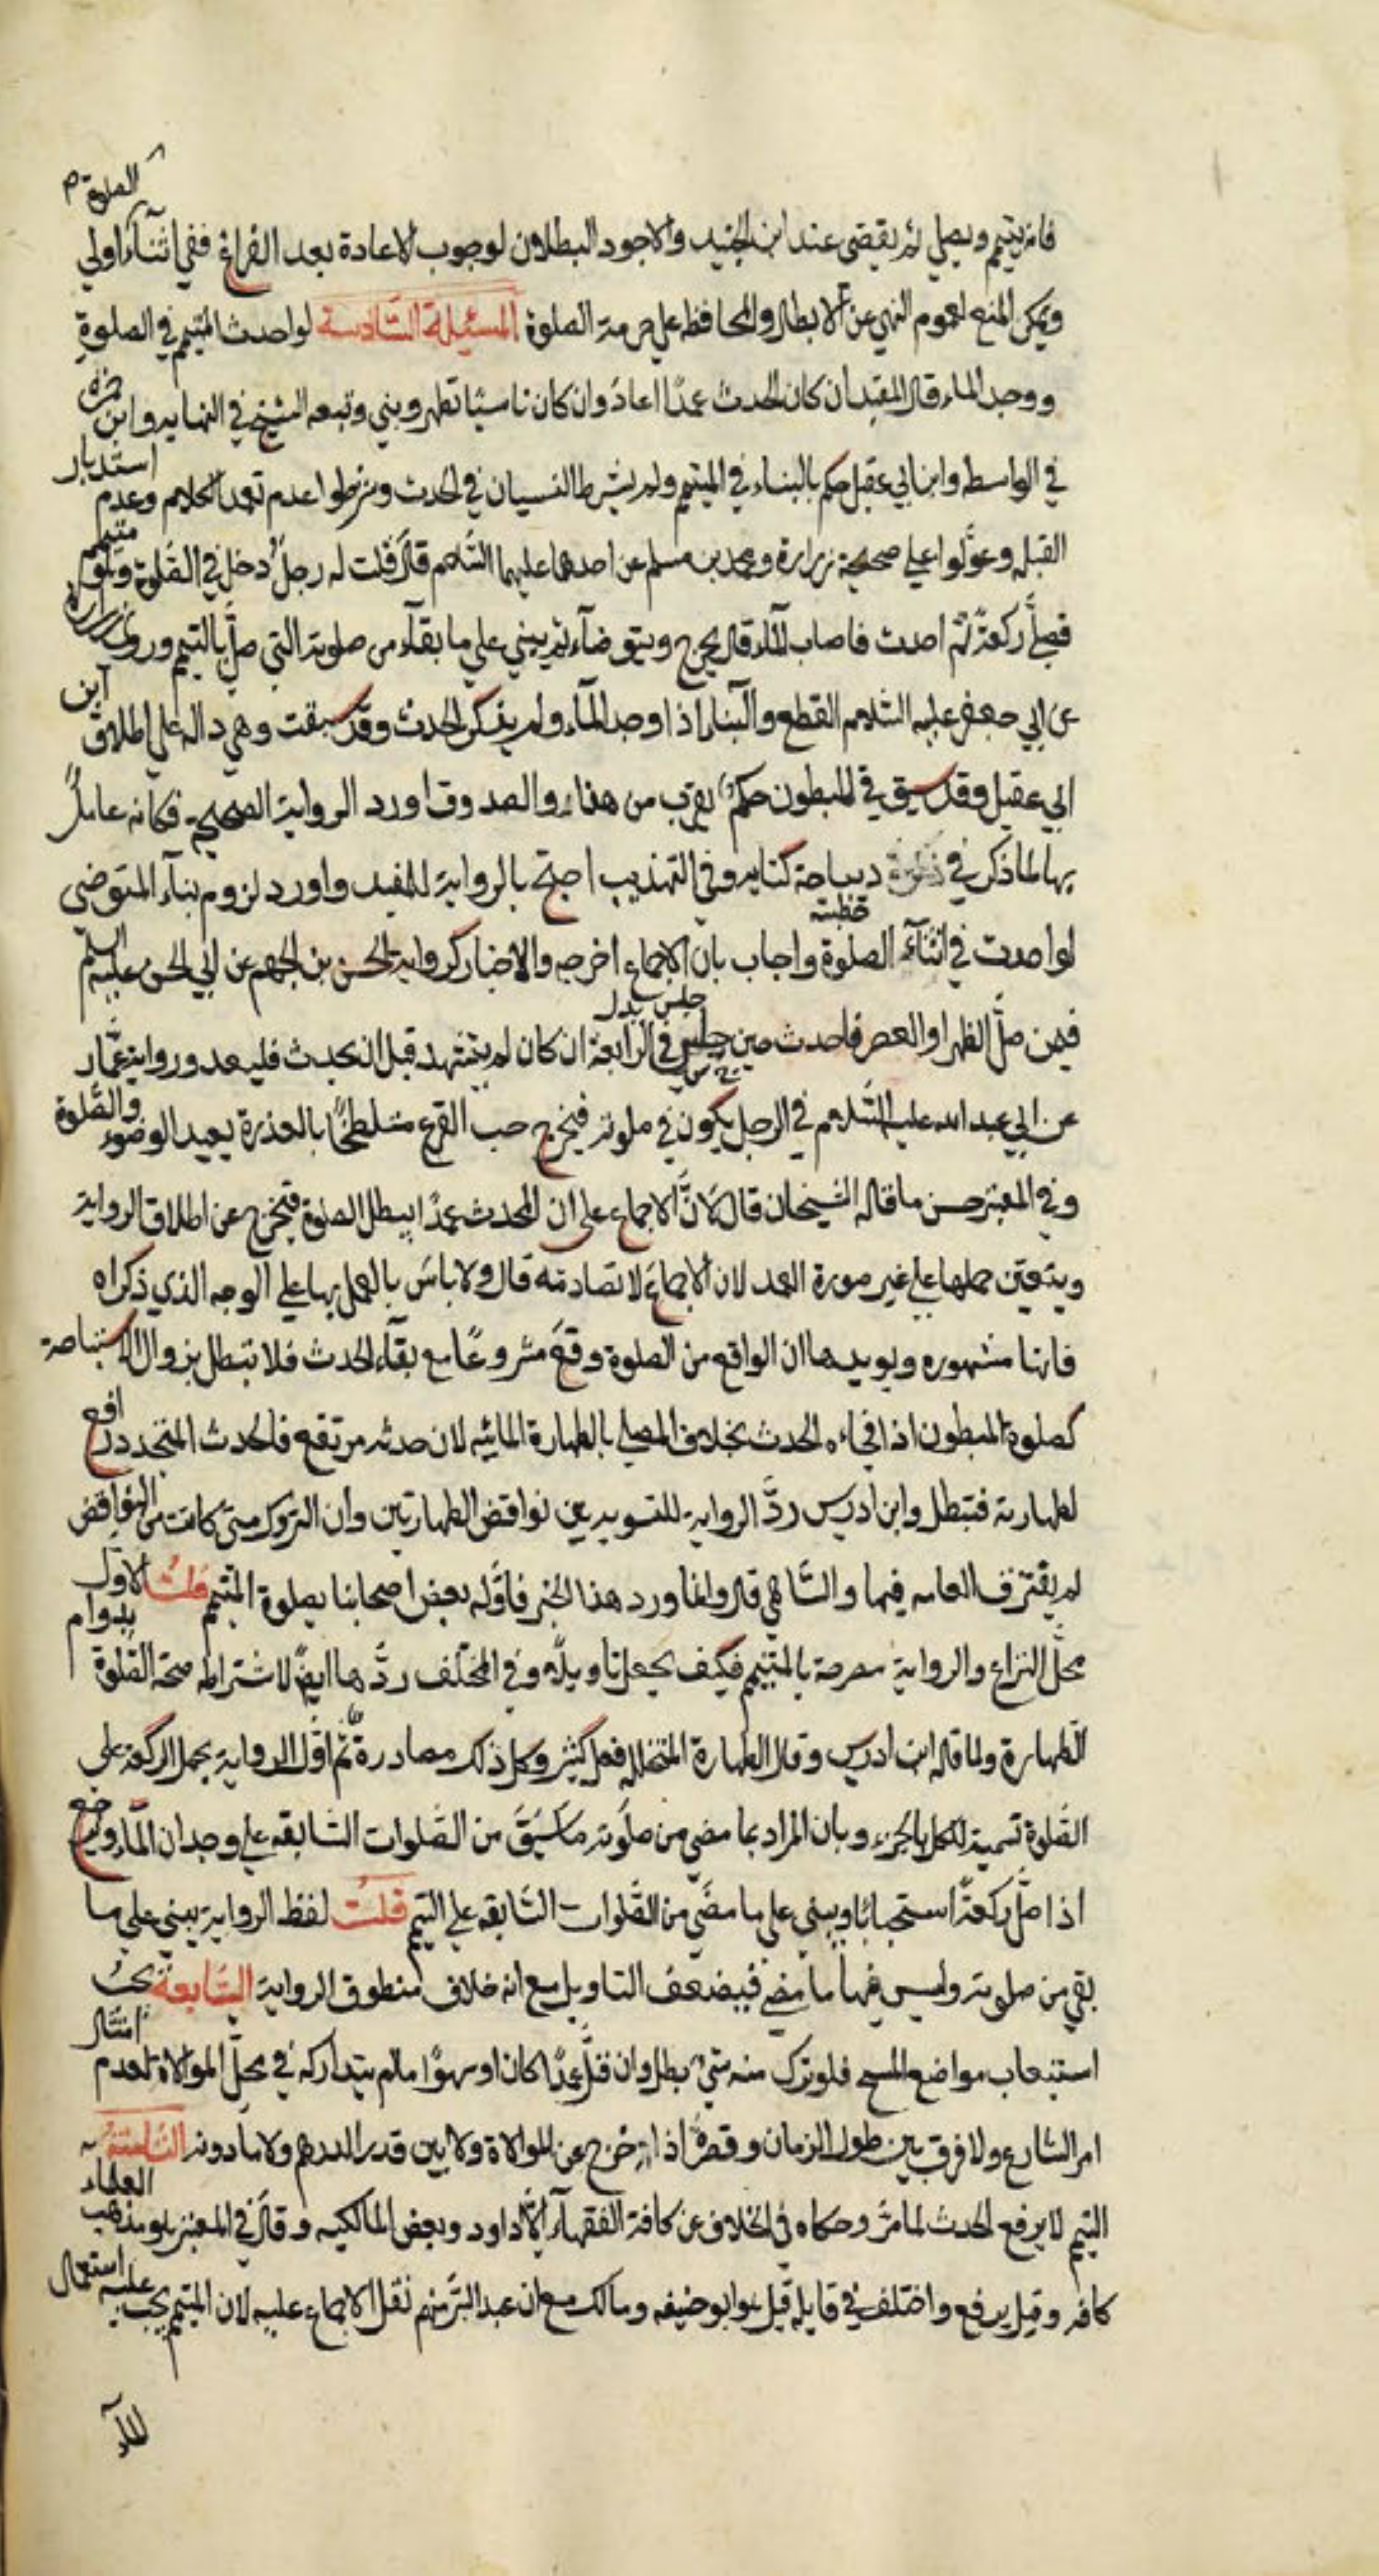 الصلوة م
فانه يتيمم ويصلي ثم يقضي عند ابن الجنيد والاجود البطلان لوجوب الاعادة بعد الفراغ ففي اثنآء اولي
ويمكن المنع لعموم النهي عن الابطال والمحافظه علي حرمة الصلوة المسئلة السّادسة لو احدث المتيمم في الصلوة
ووجد الماء قال المفيد ان كان الحدث عمدًا اعاد وان كان ناسيًا تطهر وبني وتبعه الشيخ في النهايه وابن حمزه
في الواسطه وابن ابي عقيل حكم بالبناء في المتيمم ولم يشرط النسيان في الحدث وشرطوا عدم تعمد الكلام وعدم استدبار
القبله وعوّلوا علي صحيحة زرارة ومحمد بن مسلم عن احدهما عليهما السّلام قال قلت له رجلٌ دخل في الصّلوة وهو متيمم
فصلّي ركعةً ثم احدث فاصاب المآء قال يخرج ويتوضآء ثم يبني علي ما بقآء من صلوته التي صلّ بالتيمم وروي زرارة
عن ابي جعفر عليه السّلام القطع والبنآء اذا وجد المآء ولم يذكر الحدث وقد سبقت وهي داله علي اطلاق ابن
ابي عقيل وقد سبق في المبطون حكمٌ يقرب من هذا والصدوق اورد الرواية الصحيحه فكانه عاملٌ
بها لما ذكر في ديباجة كتابه وفي التهذيب احتج بالرواية للمفيد واورد لزوم بنآء المتوضي
خطبته
لو احدث في اثنآء الصلوة واجاب بان الاجماع اخرجه والاخبار كرواية الحسن بن الجهم عن ابي الحسن عليه السلم
جلس بدل
فيمن صلّ الظهر او العصر فاحدث حين جلس في الرّابعة ان كان لم يتشهد قبل ان يحدث فليعد ورواية عمّار
عن ابي عبد الله عليه السّلام في الرجل يكون في صلوته فيخرج حب القرع متلطخًا بالعذرة يعيد الوضوء والصّلوة
وفي المعتبر حسن ما قاله الشيخان قال لانّ الاجماع علي ان المحدث عمدًا يبطل الصلوة فتخرج عن اطلاق الرواية
ويتعين حملها علي غير صورة العمد لان الاجماع لا تصادمه قال ولا باس بالعمل بها علي الوجه الذي ذكراه
فانها مشهوره ويويدها ان الواقع من الصلوة وقع مشروعًا مع بقآء الحدث فلا تبطل بزوال الاستباحة
كصلوة المبطون اذا فجاءه الحدث بخلاف المصلي بالطهارة المائيه لان حدثه مرتفع فالحدث المتجدد رافع
لطهارته فتبطل وابن ادريس ردّ الرواية للتسويه بين نواقض الطهارتين وان التروك متي كانت من النواقض
لم يفترق العامه فيها والسّاهي قال وانما ورد هذا الخبر فاوّله بعض اصحابنا بصلوة المتيمم قلتُ الاول
محلّ النزاع والرواية مصرحة بالمتيمم فكيف يجعل تاويلًا وفي المختلف ردّها ايضًا لاشتراط صحة الصّلوة بدوام
الطهارة ولما قاله ابن ادريس وقال الطهارة المتخلله فعل كثير وكل ذلك مصادرة ثم اوّل الرواية بحمل الركعة علي
الصّلوة تسمية للكل بالجزء وبان المراد بما مضي من صلوته ما سبق من الصّلوات السّابقه علي وجدان المآء
اذا صلّ ركعةً استحبابًا ويبني علي ما مضي من الصّلوات السّابقه علي التيمم قلتُ لفظ الرواية يبني علي ما
بقي من صلوته وليس فيها ما مضي فيضعف التاويل مع انه خلاف منطوق الرواية السّابعة يجب
استيعاب مواضع المسح فلو ترك منه شيء بطل وان قلّ عمدًا كان او سهوًا ما لم يتداركه في محلّ الموالاة لعدم امتثال
امر الشارع ولا فرق بين طول الزمان وقصره اذا خرج عن الموالاة ولا بين قدر الدرهم ولا ما دونه الثّامنة
التيمم لا يرفع الحدث لما مرّ وحكاه في الخلاف عن كافة الفقهآء الّا داود وبعض المالكيه وقال في المعتبر هو مذهب العلماء
كافه وقيل يرفع واختلف في قايله قيل هو ابو حنيفه ومالك مع ان عبد البرّ منهم نقل الاجماع عليه لان المتيمم يجب عليه استعمال
المآء